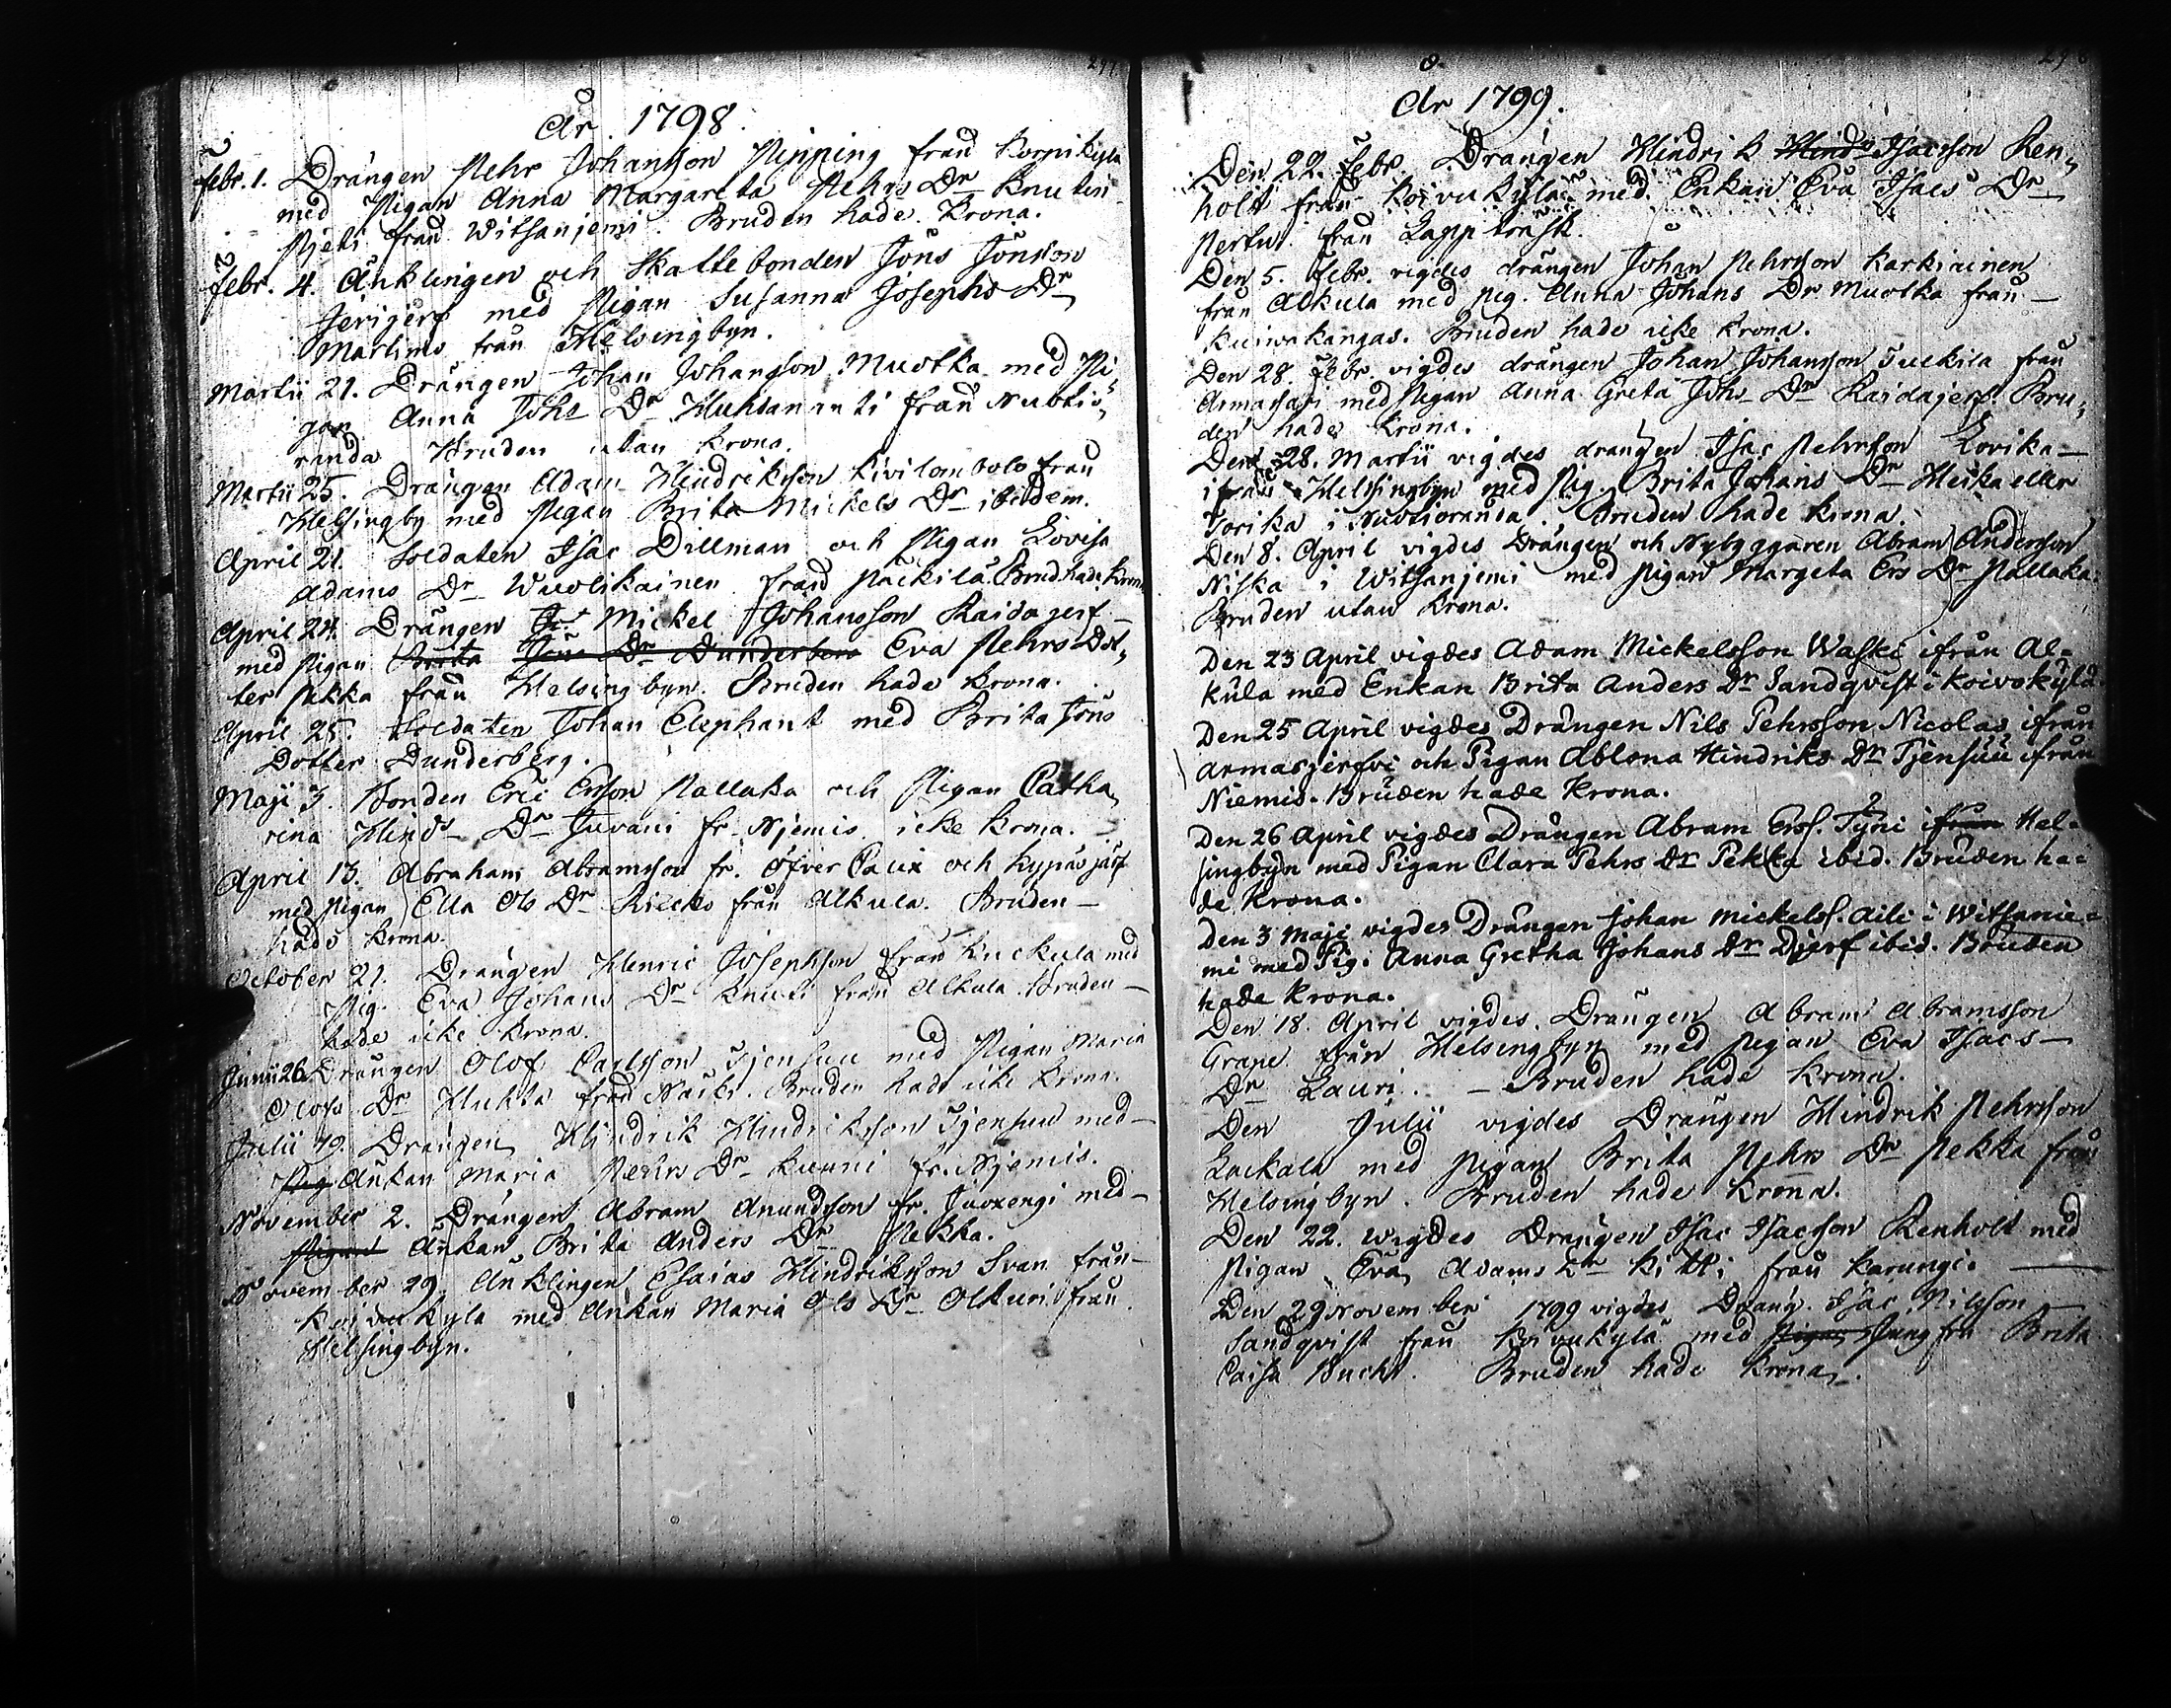 År 1798.
Febr. 1. Drängen Pehr Johansson Pipping från Korpikylä
med Pigan Anna Margareta Pehrs Dr Knuten
Pjeti från Witsanjemi. Bruden hade Krona.
Febr. 4. Änklingen och Skattebonden Jöns Jönsson
Jerijerf med Pigan Susanna Josephs Dr
Martimo från Helsingbyn.
Martii 21. Drängen Johan Johansson Muotka med Pi-
gan Anna Johs Dr Huhtananti från Nuotio-
randa Bruden utan krona.
Martii 25. Drängen Adam Hindriksson Kivilombolo från
Helsingby med Pigan Brita Mickels Dr ibidem.
April 21. Soldaten Isac Dillman och Pigan Lovisa
Adams Dr Wuolikainen från Päckilä. Brud. hade Krona
April 24. Drängen Mickel Johansson Raidajerf
med Pigan Brita Jöns Dr Dunderberg Eva Pehrs Dot-
ter Pekka från Helsingbyn. Bruden hade Krona.
April 25. Soldaten Johan Elephant med Brita Jöns
Dotter Dunderberg.
Maji 3. Bonden Eric Ersson Pallaka och Pigan Catha-
rina Hinds Dr Juvani fr. Njemis icke krona.
April 13. Abraham Abramsson fr. Öfver Calix och Hyypäsjärf
med Pigan Ella Ols Dr Riecko från Alkula. Bruden
hade Krona.
October 21. Drängen Henric Josephsson från Kuckula med
Pig. Eva Johans Dr Knuti från Alkula. Bruden
hade icke krona.
Junii 26. Drängen Olof Carlsson Tjensuu med Pigan Maria
Olofs Dr Huhta från Näcki. Bruden hade icke Krona.
Julii 19. Drängen Hindrik Hindriksson Tjensuu med
Pig Änkan Maria Pehrs Dr Kunni fr. Njemis.
November 2. Drängen Abram Anundsson fr. Juoxengi med
Pigan Änkan Brita Anders Dr Pekka.
November 29. Änklingen Esaias Hindriksson Svan från
Koivukylä med Änkan Maria Ols Dr Olkuri från
Helsingbyn.
År 1799.
Den 22. Febr. Drängen Hindrik Hinds Isacsson Ren-
holt från Koivukylä med Enkan Eva Isacs Dr
Perttu från Lappträsk.
Den 5. Febr. vigdes drängen Johan Pehrsson Karkiainen
från Alkula med Pig. Anna Johans Dr Muotka från
Kuiwakangas. Bruden hade icke krona.
Den 28. Febr. vigdes drängen Johan Johansson Tuckila från
Armasjari med Pigan Anna Greta Johs Dr Raidajerf Bru-
den hade Krona.
Den 28. Martii vigdes drängen Isac Pehrsson Lovika
ifrån Helsingbyn med Pig. Brita Johans Dr Heika eller
Jorika i Nuotioranda. Bruden hade krona.
Den 8. April vigdes Drängen och Nybyggaren Abram Andersson
Niska i Witsanjemi med Pigan Margeta Ers Dr Pallaka
Bruden utan Krona.
Den 23 April vigdes Adam Mickelsson Waski ifrån Al-
kula med Enkan Brita Anders Dr Sandqvist i Koivokylä
Den 25 April vigdes Drängen Nils Pehrsson Nicolas ifrån
Armasjerfvi och Pigan Ablona Hindriks Dr Tjensuu ifrån
Niemis. Bruden hade Krona.
Den 26 April vigdes Drängen Abram Erss. Tyni ifrån Hel-
singbyn med Pigan Clara Pehrs Dr Pekka ibid. Bruden ha-
de Krona.
Den 3 Maji vigdes Drängen Johan Mickelss. Aili i Witsanie-
mi med Pig. Anna Gretha Johans Dr Djerf ibid. Bruden
hade Krona.
Den 18. April vigdes Drängen Abram Abramsson
Grape från Helsingbyn med Pigan Eva Isacs
Dr Lauri. Bruden hade Krona.
Den Julii vigdes Drängen Hindrik Pehrsson
Lackala med Pigan Brita Pehrs Dr Pekka från
Helsingbyn. Bruden hade Krona.
Den 22. wigdes Drängen Isac Isacsson Renholt med
Pigan Eva Adams Dr Kitti från Karungi.
Den 29 November 1799 vigdes Dräng. Isac Nilsson
Sandqvist från Koivukylä med Pigan Jungfru Brita
Caisa Bucht. Bruden hade Krona.